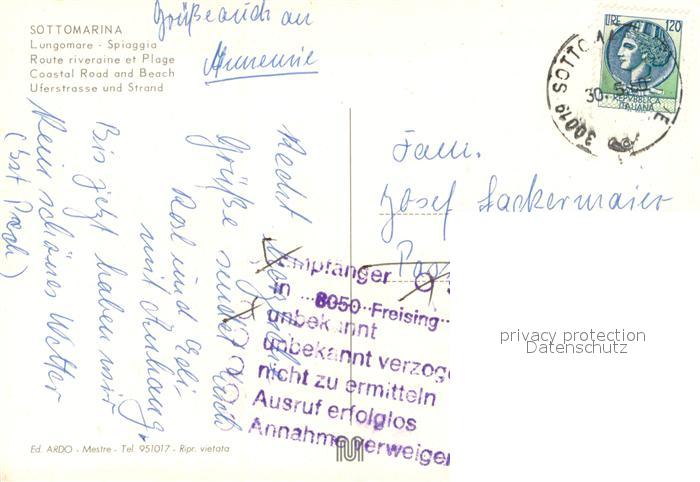 Grüße auch an
Annemie
SOTTOMARINA
Lungomare - Spiaggia
Route riveraine et Plage
Coastal Road and Beach
Uferstrasse und Strand
LIRE 120
REPVBBLICA
ITALIANA
30019 SOTTOMA
30.5.80
Recht
Grüße sendet Euch
Rosl und Edi
mit Anhang.
Bis jetzt haben wir
kein schönes Wetter
(ist Pech)
Fam.
Josef Lackermaier
Empfänger
in 8050 Freising
unbekannt
unbekannt verzoge
nicht zu ermitteln
Ausruf erfolglos
Annahme verweiger
privacy protection
Datenschutz
Ed. ARDO - Mestre - Tel. 951017 - Ripr. vietata